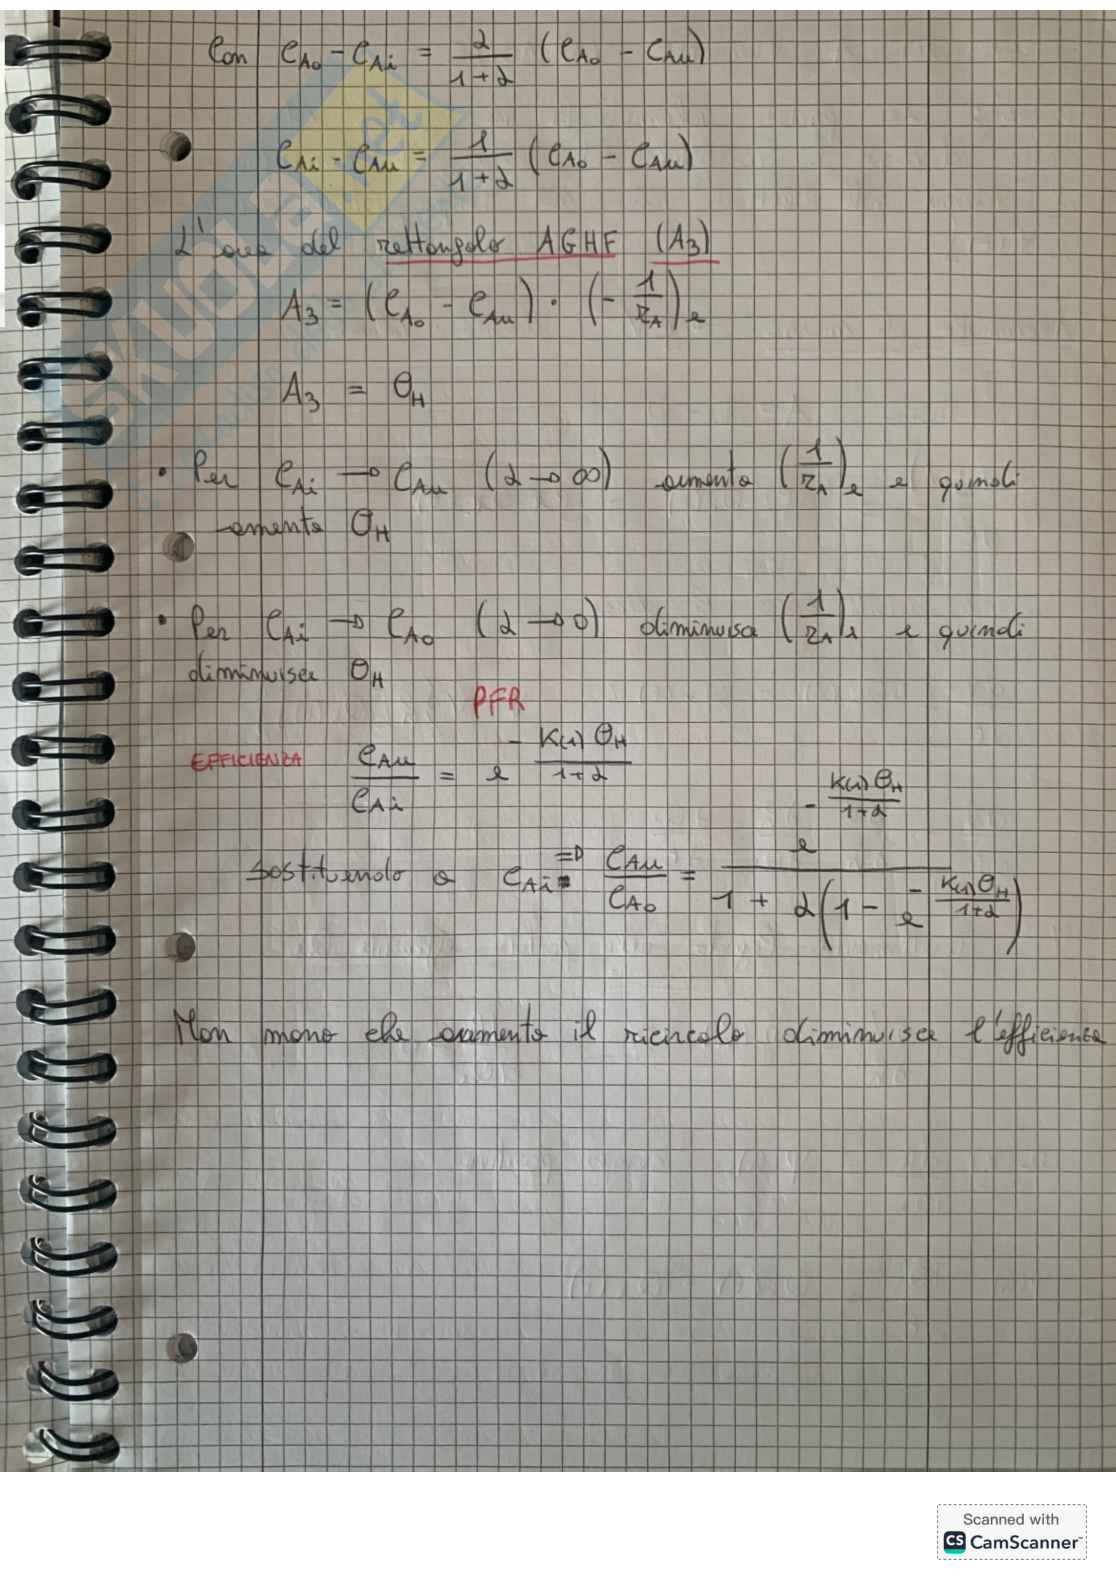 Con C_A0 - C_Ai = α/(1+α) (C_A0 - C_Au)
C_Ai - C_Au = 1/(1+α) (C_A0 - C_Au)
L'area del rettangolo AGHF (A3)
A3 = (C_A0 - C_Au) · (- 1/r_A)_e
A3 = θ_H
• Per C_Ai → C_Au (α → ∞) aumenta (1/r_A)_e e quindi
aumenta θ_H
• Per C_Ai → C_A0 (α → 0) diminuisce (1/r_A)_e e quindi
diminuisce θ_H
PFR
EFFICIENZA C_Au/C_Ai = e^(- K(1) θ_H/(1+α))
sostituendo a C_Ai ⇒ C_Au/C_A0 = e^(- K(1) θ_H/(1+α)) / (1 + α(1 - e^(- K(1) θ_H/(1+α))))
Man mano che aumento il ricircolo diminuisce l'efficienza
SKUOLA.net
Scanned with
CS CamScanner